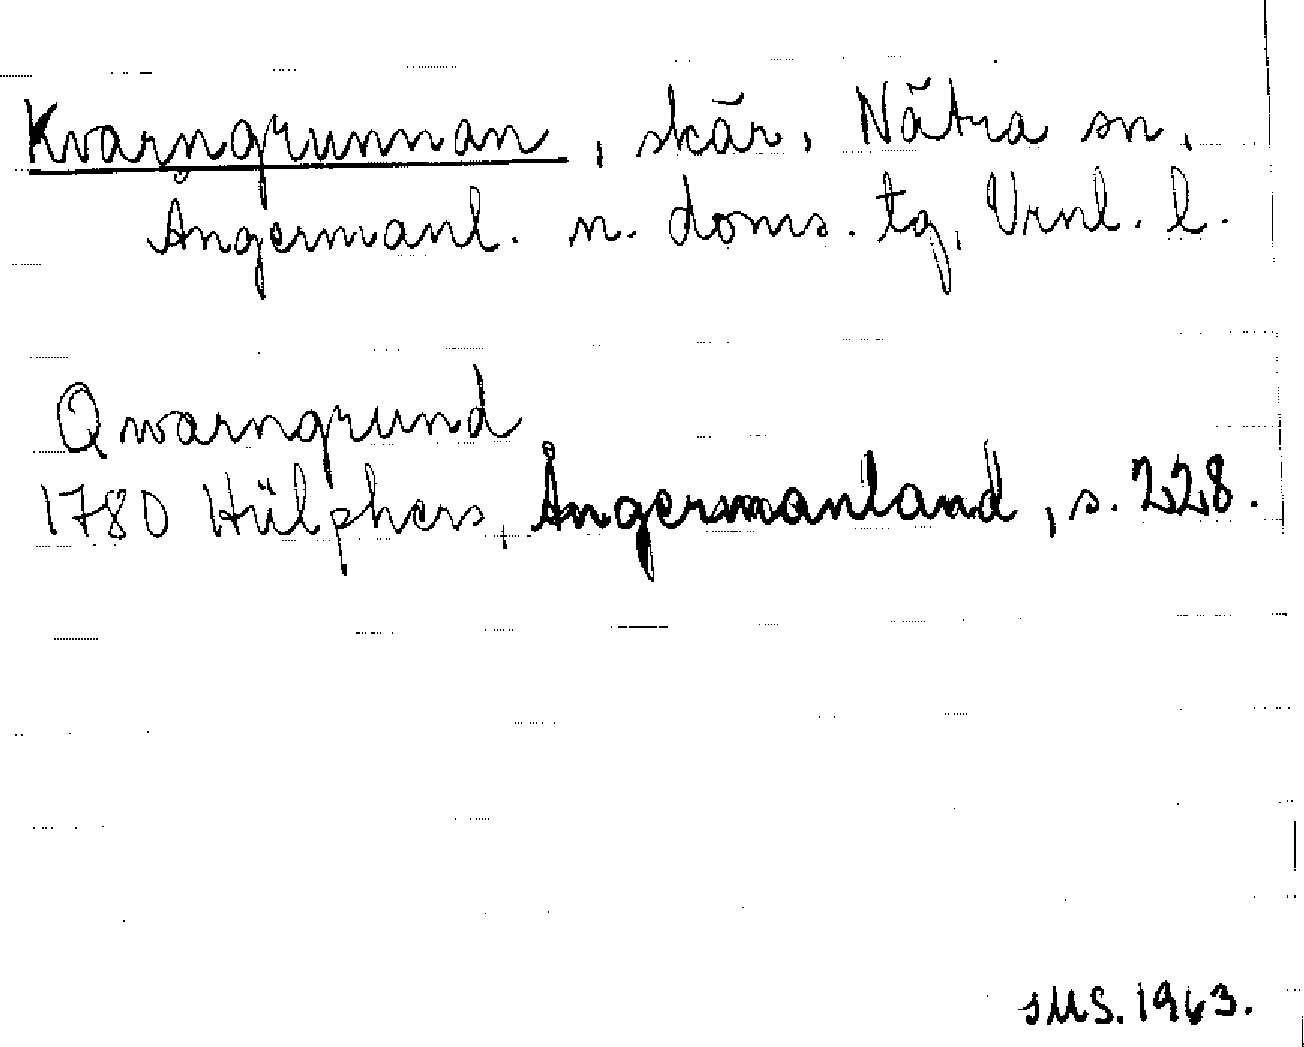 Kvarngrunnan, skär, Nätra sn,
Ångermanl. n. doms. tg, Vrnl. l.
Qwarngrund
1780 Hülphers, Ångermanland, s. 228.
SMS. 1963.